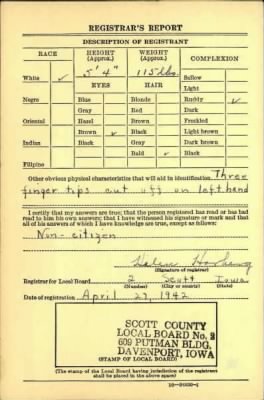 REGISTRAR'S REPORT
DESCRIPTION OF REGISTRANT
RACE HEIGHT (Approx.) WEIGHT (Approx.) COMPLEXION
5' 4" 115 lbs. Sallow
White ✓ Light
EYES HAIR
Negro Blue Blonde Ruddy ✓
Gray Red Dark
Oriental Hazel Brown Freckled
Brown ✓ Black Light brown
Indian Black Gray Dark brown
Bald ✓ Black
Filipino
Other obvious physical characteristics that will aid in identification Three
finger tips cut off on left hand
I certify that my answers are true; that the person registered has read or has had
read to him his own answers; that I have witnessed his signature or mark and that
all of his answers of which I have knowledge are true, except as follows:
Non-citizen
Helen
(Signature of registrar)
Registrar for Local Board 2 Scott Iowa
(Number) (City or county) (State)
Date of registration April 27, 1942
SCOTT COUNTY
LOCAL BOARD No. 2
609 PUTMAN BLDG.
DAVENPORT, IOWA
(STAMP OF LOCAL BOARD)
(The stamp of the Local Board having jurisdiction of the registrant
shall be placed in the above space)